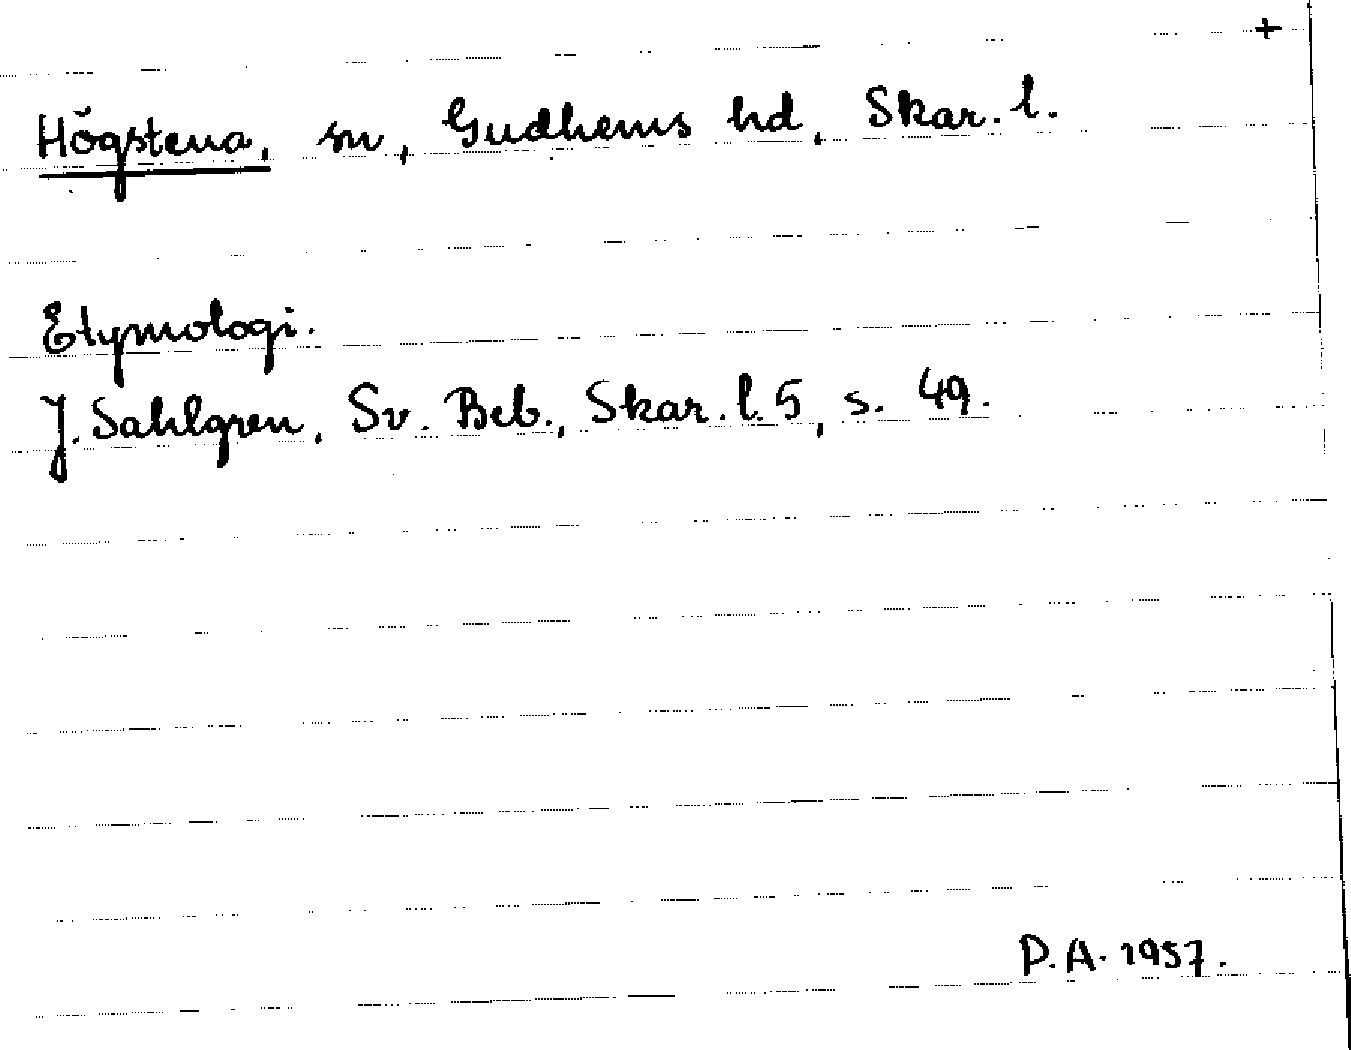 +
Högstena, sn, Gudhems hd, Skar. l.
Etymologi.
J. Sahlgren, Sv. Beb., Skar. l. 5, s. 49.
P.A. 1957.